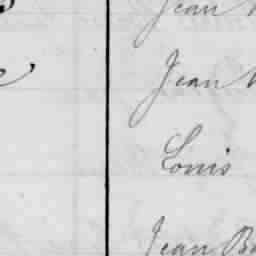 Jean
Jean
Louis
Jean B